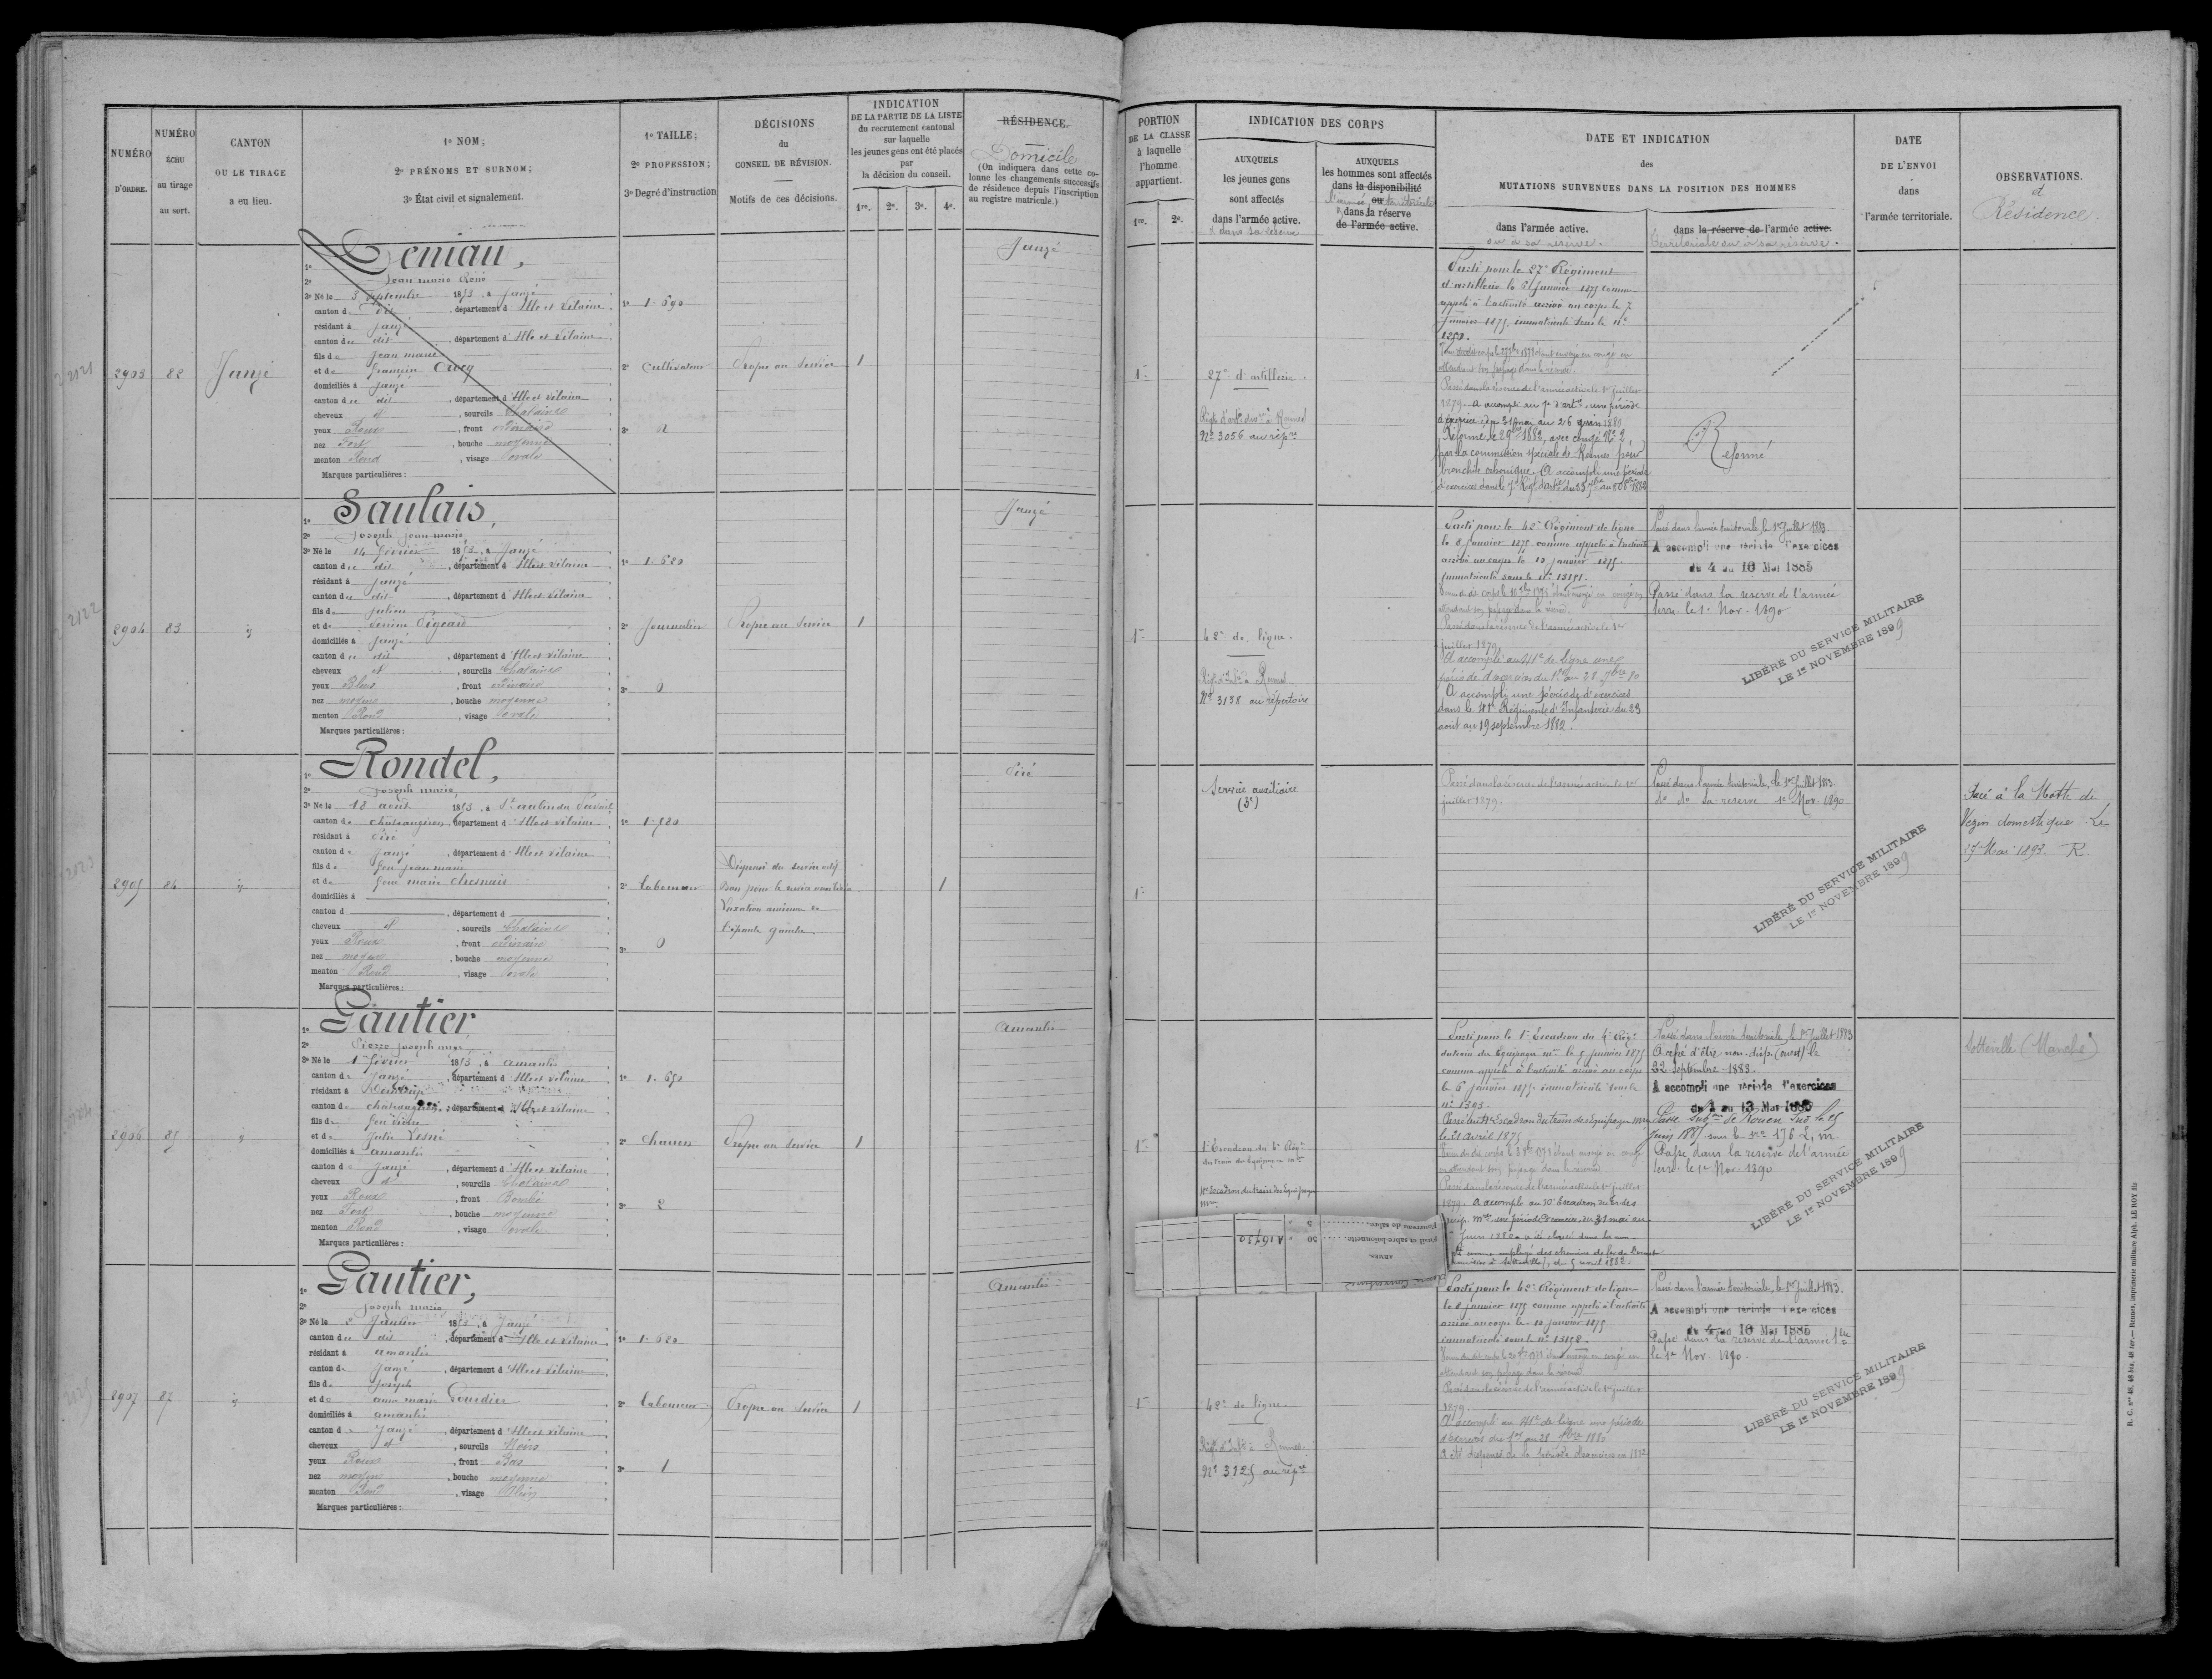 NUMÉRO D'ORDRE.
NUMÉRO ÉCHU au tirage au sort.
CANTON OU LE TIRAGE a eu lieu.
1º NOM;
2º PRÉNOMS ET SURNOM;
3º État civil et signalement.
1º TAILLE;
2º PROFESSION;
3º Degré d'instruction
DÉCISIONS du CONSEIL DE RÉVISION.
Motifs de ces décisions.
INDICATION DE LA PARTIE DE LA LISTE du recrutement cantonal sur laquelle les jeunes gens ont été placés par la décision du conseil.
1re. 2e. 3e. 4e.
RÉSIDENCE.
Domicile
(On indiquera dans cette colonne les changements successifs de résidence depuis l'inscription au registre matricule.)
PORTION DE LA CLASSE à laquelle l'homme appartient.
1re. 2e.
INDICATION DES CORPS
AUXQUELS les jeunes gens sont affectés dans l'armée active.
et dans sa réserve
AUXQUELS les hommes sont affectés dans la disponibilité ou
l'armée territoriale
dans la réserve de l'armée active.
DATE ET INDICATION des MUTATIONS SURVENUES DANS LA POSITION DES HOMMES
dans l'armée active.
ou à sa réserve.
dans la réserve de l'armée active.
territoriale ou à sa réserve.
DATE DE L'ENVOI dans l'armée territoriale.
OBSERVATIONS.
et
Résidence.
2903 82 Janzé
1º Deniau,
2º Jean marie René
3º Né le 3 septembre 1853, à Janzé
canton de dit, département d'Ille et Vilaine
résidant à Janzé
canton de dit, département d'Ille et Vilaine
fils de Jean marie
et de françoise Crocq
domiciliés à Janzé
canton de dit, département d'Ille et Vilaine
cheveux et, sourcils Chatains
yeux Roux, front ordinaire
nez Fort, bouche moyenne
menton Rond, visage Ovale
Marques particulières :
1º 1.690
2º Cultivateur
3º 2
Propre au Service
1
Janzé
1re
27e d'artillerie.
Nº 3056 au rép.re
Parti pour le 27e Régiment
d'artillerie le 6 Janvier 1875 comme
appelé à l'activité arrivé au corps le 7
Janvier 1875, immatriculé sous le nº
1250.
Passé dans la réserve de l'armée active le 1er juillet
1879. A accompli au 7e d'art.ie une période
d'exercices du 31 mai au 26 juin 1880
Réformé le 29 1883, avec congé Nº 2,
par la commission spéciale de Rennes pour
bronchite chronique. A accompli une période
Réformé
2904 83 id
1º Saulais,
2º Joseph Jean marie
3º Né le 14 février 1853, à Janzé
canton de dit, département d'Ille et Vilaine
résidant à Janzé
canton de dit, département d'Ille et Vilaine
fils de Julien
et de Perrine Pigeard
domiciliés à Janzé
canton de dit, département d'Ille et Vilaine
cheveux et, sourcils Chatains
yeux Bleus, front ordinaire
nez moyen, bouche moyenne
menton Rond, visage Ovale
Marques particulières :
1º 1.620
2º Journalier
3º 0
Propre au Service
1
Janzé
1re
42e de ligne.
Nº 3138 au répertoire
Parti pour le 42e Régiment de ligne
le 8 Janvier 1875 comme appelé à l'activité
arrivé au corps le 12 janvier 1875.
Immatriculé sous le nº 13151.
Passé dans la réserve de l'armée active le 1er
juillet 1879.
A accompli au 41e de ligne une
A accompli une période d'exercices
dans le 41e Régiment d'Infanterie du 23
août au 19 septembre 1882.
Passé dans l'armée territoriale, le 1er Juillet 1883.
A accompli une période d'exercices
du 4 au 16 Mai 1885
Passé dans la réserve de l'armée
terr. le 1er Nov. 1890
LIBÉRÉ DU SERVICE MILITAIRE
LE 1er NOVEMBRE 1899
2905 84 id
1º Rondel,
2º Joseph marie,
3º Né le 18 août 1853, à St aubin du Pavail
canton de châteaugiron, département d'Ille et Vilaine
résidant à Piré
canton de Janzé, département d'Ille et Vilaine
fils de feu Jean marie
et de feue marie Chesnais
domiciliés à
canton d , département d
cheveux et, sourcils Chatains
yeux Roux, front ordinaire
nez moyen, bouche moyenne
menton Rond, visage Ovale
Marques particulières :
1º 1.720
2º Laboureur
3º 0
Dispensé du service actif
Bon pour le service auxiliaire
Luxation ancienne de
l'épaule gauche.
1
Piré
1re
Service auxiliaire
(3e)
Passé dans la réserve de l'armée active le 1er
juillet 1879.
Passé dans l'armée territoriale, le 1er Juillet 1883.
do do sa réserve 1er Nov. 1890
LIBÉRÉ DU SERVICE MILITAIRE
LE 1er NOVEMBRE 1899
Placé à la Motte de
Vezin domestique Le
27 Mai 1893. R
2906 85 id
1º Gautier
2º Pierre Joseph ange
3º Né le 1er février 1853, à amanlis
canton de Janzé, département d'Ille et Vilaine
résidant à
canton de châteaugiron, département d'Ille et Vilaine
fils de feu
et de Julie Lesné
domiciliés à amanlis
canton de Janzé, département d'Ille et Vilaine
cheveux et, sourcils Chatains
yeux Roux, front Bombé
nez Fort, bouche moyenne
menton Rond, visage Ovale
Marques particulières :
1º 1.650
2º Charron
3º 2
Propre au Service
1
Amanlis
1re
1er Escadron du 4e Rég.t
du train des Equipages m.res
Parti pour le 1er Escadron du 4e Rég.t
du train des Equipages m.res le 5 janvier 1875
comme appelé à l'activité arrivé au corps
le 6 janvier 1875 immatriculé sous le
nº 1303.
le 21 avril 1875
Passé dans la réserve de l'armée active le 1er juillet
1879. A accompli au 10e Escadron du train des
équip. m.res une période d'exercices du 31 mai au
Juin 1880
Passé dans l'armée territoriale, le 1er Juillet 1883
A cessé d'être non-disp. (ouest) le
22 septembre 1883.
A accompli une période d'exercices
du 1 au 13 Mai 1885
Passé Sub.on de Rouen Sud le 25
Juin 1885 sous le nº 176 L, m.
Passé dans la réserve de l'armée
terr. le 1er Nov. 1890
LIBÉRÉ DU SERVICE MILITAIRE
LE 1er NOVEMBRE 1899
Sotteville (Manche)
ARMES.
Fusil et sabre-baïonnette 50 A16750
Fourreau de sabre 5
2907 87 id
1º Gautier,
2º Joseph marie
3º Né le 2 Janvier 1853, à Janzé
canton de dit, département d'Ille et Vilaine
résidant à amanlis
canton de Janzé, département d'Ille et Vilaine
fils de Joseph
et de anne marie Gourdier
domiciliés à amanlis
canton de Janzé, département d'Ille et Vilaine
cheveux et, sourcils Noirs
yeux Roux, front Bas
nez moyen, bouche moyenne
menton Rond, visage Plein
Marques particulières :
1º 1.620
2º Laboureur
3º 1
Propre au Service
1
Amanlis
1re
42e de ligne
Nº 3125 au rép.re
Parti pour le 42e Régiment de ligne
le 8 janvier 1875 comme appelé à l'activité
arrivé au corps le 12 janvier 1875
immatriculé sous le nº 13158.
Passé dans la réserve de l'armée active le 1er juillet
1879.
A accompli au 41e de ligne une période
d'exercices du 1er au 28 1880
A été dispensé de la période d'exercices en 1882
Passé dans l'armée territoriale, le 1er Juillet 1883.
A accompli une période d'exercices
du 4 au 16 Mai 1885
Passé dans la réserve de l'armée t.le
le 1er Nov. 1890.
LIBÉRÉ DU SERVICE MILITAIRE
LE 1er NOVEMBRE 1899
R. C. nos 48, 48 bis, 48 ter.— Rennes, imprimerie militaire Alph. LE ROY fils